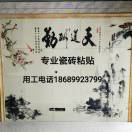 勤酬道天
专业瓷砖粘贴
+
用工电话18689923799